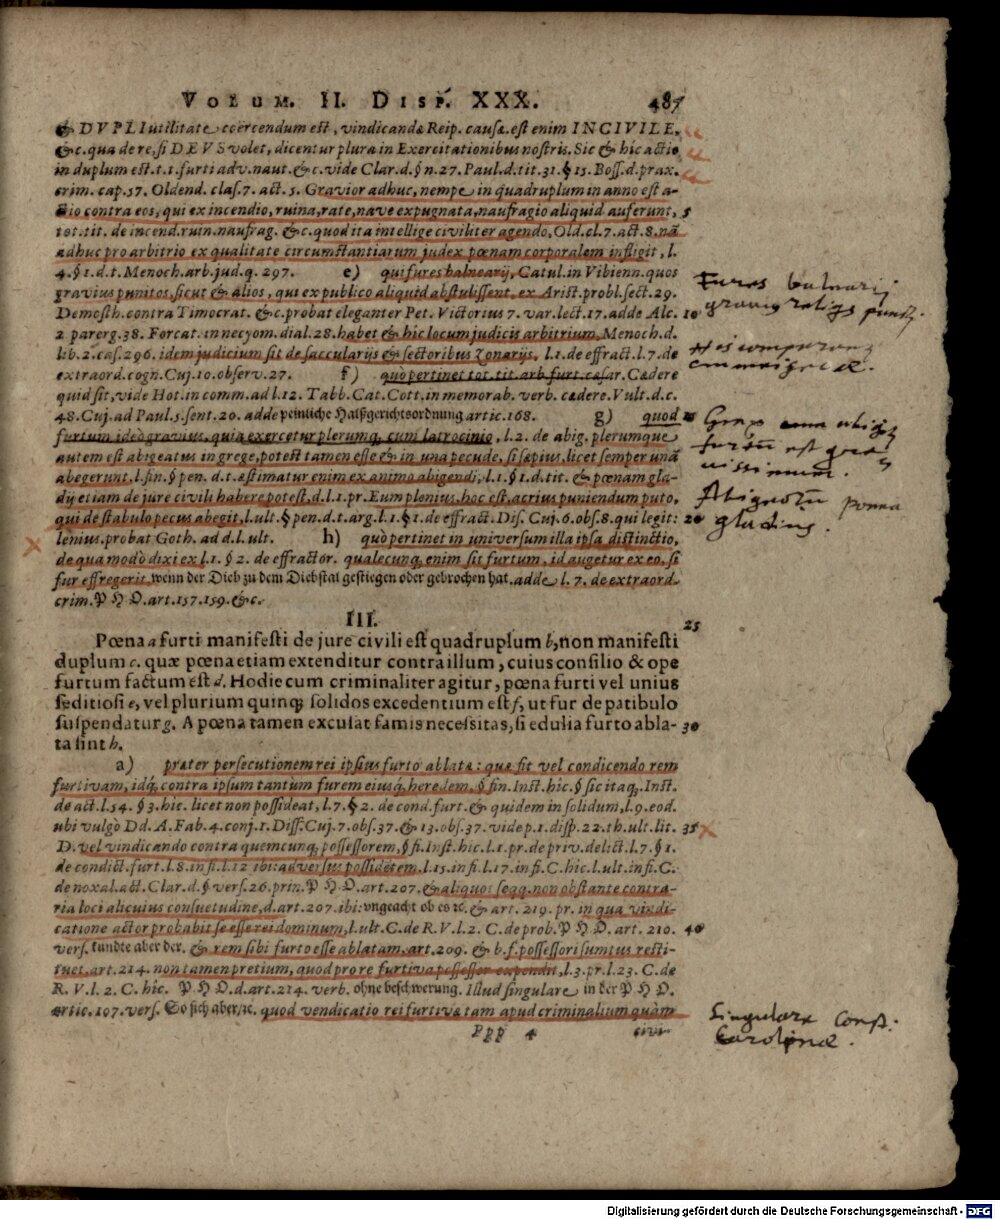 VOLUM. II. DISP. XXX. 487
& DVPLI utilitate coërcendum est, vindicandæ Reip. causâ. est enim INCIVILE,
&c. qua de re, si DEVS volet, dicentur plura in Exercitationibus nostris. Sic & hic actio
in duplum est. t. 1. furti adv. naut. &c. vide Clar. d. § n. 27. Paul. d. tit. 31. § 15. Boss. d. prax.
crim. cap. 57. Oldend. clas. 7. act. 5. Gravior adhuc, nempe in quadruplum in anno est a-
ctio contra eos, qui ex incendio, ruina, rate, nave expugnata, naufragio aliquid auferunt, 5
tot. tit. de incend. ruin. naufrag. &c. quod ita intellige civiliter agendo, Old. cl. 7. act. 8. nā
adhuc pro arbitrio ex qualitate circumstantiarum judex pœnam corporalem infligit, l.
4. § 1. d. t. Menoch. arb. jud. q. 297. e) qui fures balnearij, Catul. in Vibienn. quos
gravius punitos, sicut & alios, qui ex publico aliquid abstulissent, ex Arist. probl. sect. 29.
Demosth. contra Timocrat. &c. probat eleganter Pet. Victorius 7. var. lect. 17. adde Alc. 10
2 parerg. 38. Forcat. in necyom. dial. 28. habet & hic locum judicis arbitrium, Menoch. d.
lib. 2. cas. 296. idem judicium sit de saccularijs & sectoribus Zonarijs, l. 1. de effract. l. 7. de
extraord. cogn. Cuj. 10. observ. 27. f) quò pertinet tot. tit. arb. furt. cæsar. Cædere
quid sit, vide Hot. in comm. ad l. 12. Tabb. Cat. Cott. in memorab. verb. cædere. Vult. d. c.
48. Cuj. ad Paul. 5. sent. 20. adde peinliche Halßgerichtsordnung artic. 168. g) quod
furtum ideò gravius, quia exercetur plerumq; cum latrocinio, l. 2. de abig. plerumque
autem est abigeatus in grege, potest tamen esse & in una pecude, si sæpius, licet semper unā
abegerunt. l. fin. § pen. d. t. æstimatur enim ex animo abigendi, l. 1. § 1. d. tit. & pœnam gla-
dij etiam de jure civili habere potest, d. l. 1. pr. Eum plenius, hoc est, acrius puniendum puto,
qui de stabulo pecus abegit, l. ult. § pen. d. t. arg. l. 1. § 1. de effract. Dis. Cuj. 6. obs. 8. qui legit: 20
lenius. probat Goth. ad d. l. ult. h) quò pertinet in universum illa ipsa distinctio,
de qua modò dixi ex l. 1. § 2. de effractor. qualecunq; enim sit furtum, id augetur ex eo, si
fur effregerit, wenn der Dieb zu dem Diebstal gestiegen oder gebrochen hat. adde l. 7. de extraord.
crim. P H O. art. 157. 159. &c.
III. 25
Pœna a furti manifesti de jure civili est quadruplum b, non manifesti
duplum c. quæ pœna etiam extenditur contra illum, cuius consilio & ope
furtum factum est d. Hodie cum criminaliter agitur, pœna furti vel unius
seditiosi e, vel plurium quinq; solidos excedentium est f, ut fur de patibulo
suspendatur g. A pœna tamen excusat famis necessitas, si edulia furto abla- 30
ta sint h.
a) præter persecutionem rei ipsius furto ablatæ: quæ fit vel condicendo rem
furtivam, idq; contra ipsum tantùm furem eiusq; heredem, § fin. Inst. hic. § sic itaq; Inst.
de act. l. 54. § 3. hic. licet non possideat, l. 7. § 2. de cond. furt. & quidem in solidum, l. 9. eod.
ubi vulgò Dd. A. Fab. 4. conj. 1. Diss. Cuj. 7. obs. 37. & 13. obs. 37. vide p. 1. disp. 22. th. ult. lit. 35
D. vel vindicando contra quemcunq; possessorem, § fi. Inst. hic. l. 1. pr. de priv. delict. l. 7. § 1.
de condict. furt. l. 8. in fi. l. 12 ibi: adversus possidētem. l. 15. in fi. l. 17. in fi. C. hic. l. ult. in fi. C.
de noxal. act. Clar. d. § vers. 26. prin. P H O. art. 207. & aliquot seqq. non obstante contra-
ria loci alicuius consuetudine, d. art. 207. ibi: ungeacht ob es ꝛc. & art. 219. pr. in qua vindi-
catione actor probabit se esse rei dominum, l. ult. C. de R. V. l. 2. C. de prob. P H O. art. 210. 40
vers. kundte aber der. & rem sibi furto esse ablatam, art. 209. & b. f. possessori sumtus resti-
tuet, art. 214. non tamen pretium, quod pro re furtiva possessor expendit, l. 3. pr. l. 23. C. de
R. V. l. 2. C. hic. P H O. d. art. 214. verb. ohne beschwerung. Illud singulare in der P H O.
artic. 107. vers. So sich aber, ꝛc. quod vendicatio rei furtivæ tam apud criminalium quàm
Ppp 4 civi-
Fures balnearij
gravius punit.
His
Grex
furtū est gra-
vissimum.
Abigeorū poena
gladius.
Singulare Const.
Carolinæ.
Digitalisierung gefördert durch die Deutsche Forschungsgemeinschaft - DFG